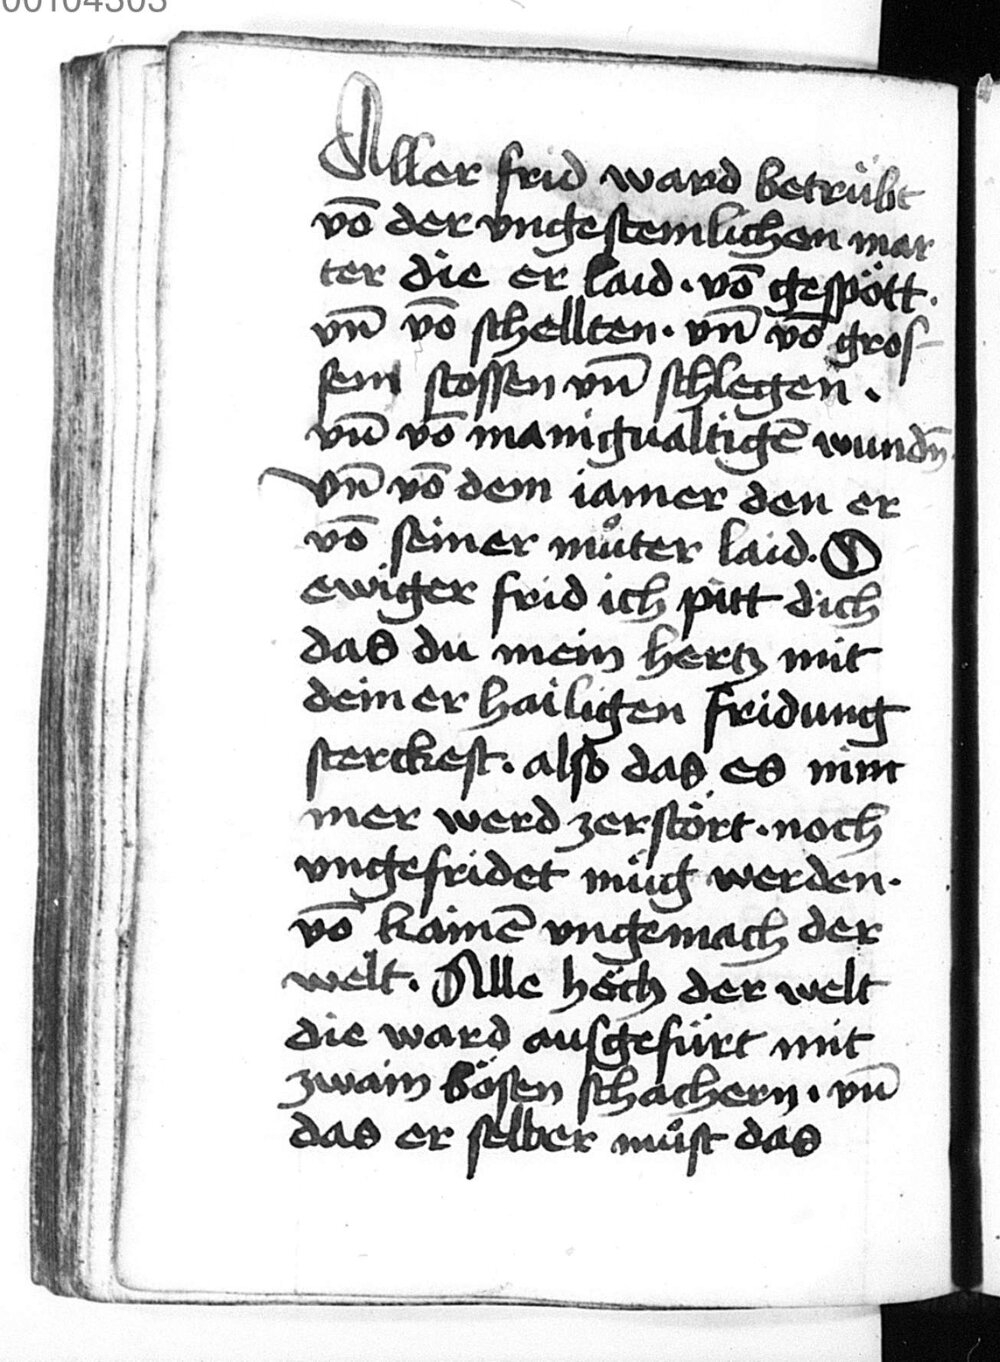 00104303
Aller frid ward betrübt
vō der vngestemlichen mar
ter die er laid . vō gespött .
vn̄ vō schellten . vn̄ vō gros
sem stossen vn̄ schlegen .
vn̄ vō manigualtigē wundn̄
vn̄ vō dem iamer den er
vō seiner můter laid . O
ewiger frid ich pitt dich
das du mein hertz mit
deiner hailigen fridung
sterckest . also das es nim
mer werd zerstört . noch
vngefridet müg werden .
vō kainē vngemach der
welt . Alle höch der welt
die ward ausgefürt mit
zwain bösen schachern . vn̄
das er selber můst das